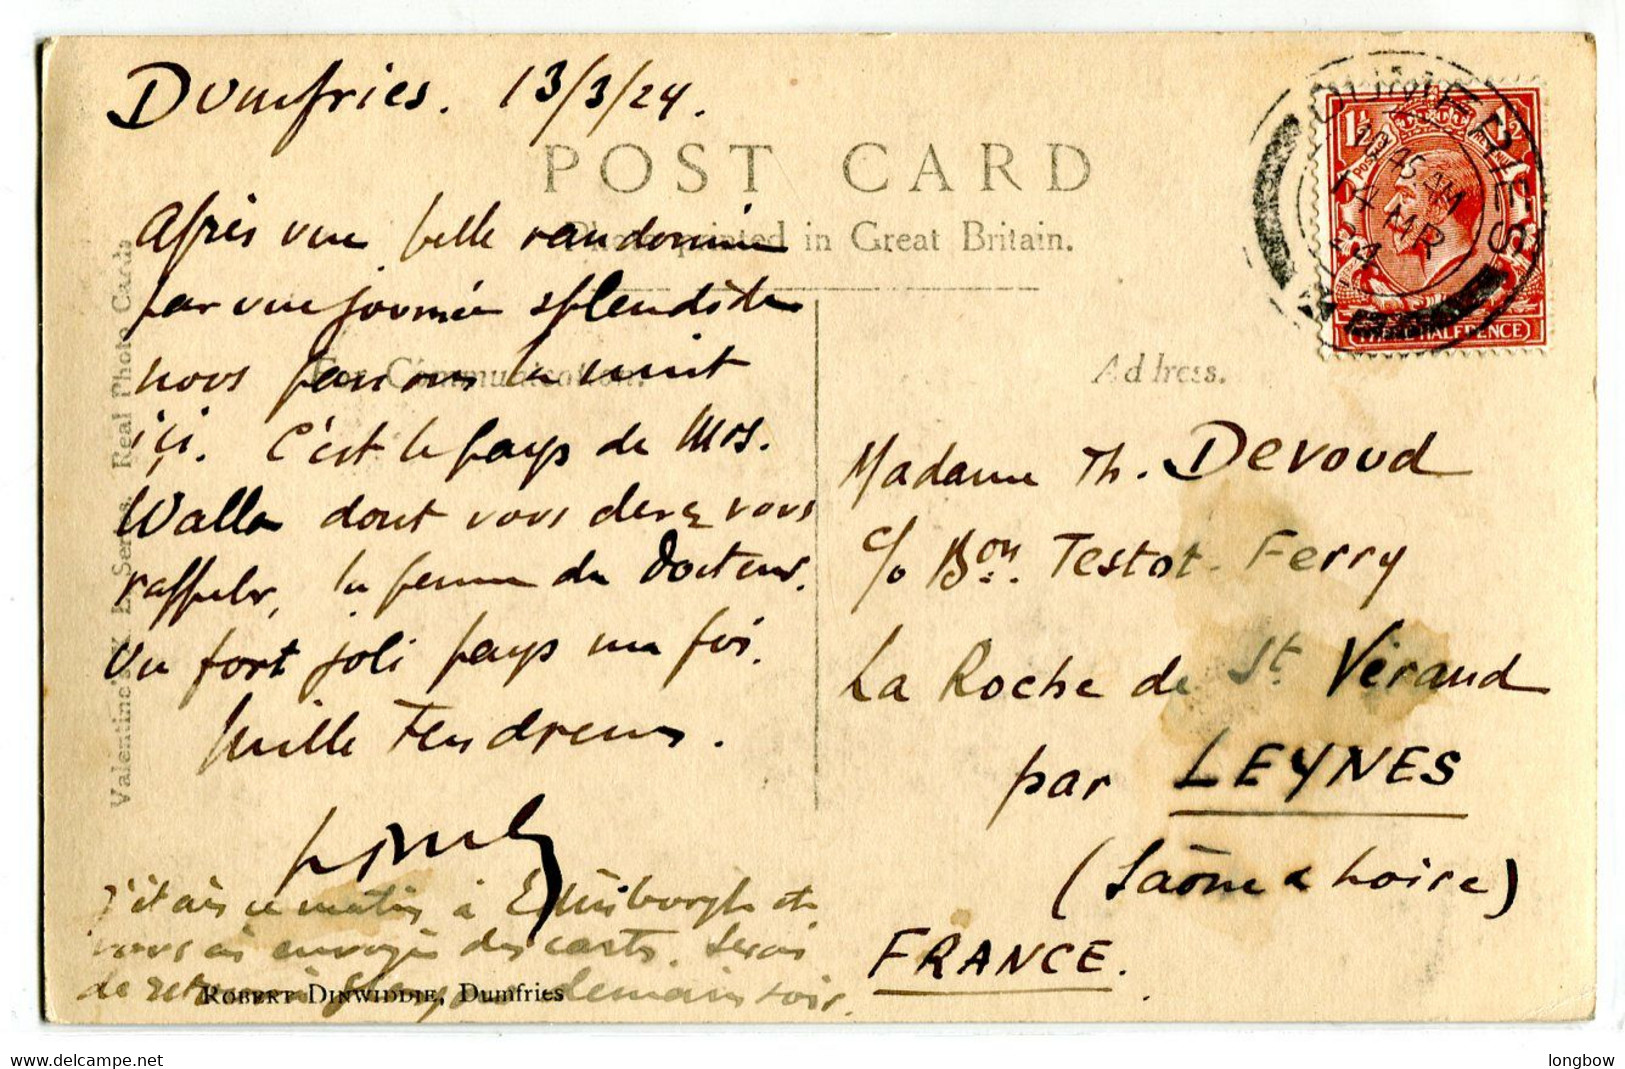 Dumfries. 13/3/24.
POST CARD
Photo printed in Great Britain.
Après une belle randonnée
par une journée splendide
nous passons la nuit
ici. C'est le pays de Mrs.
Walla dont vous devez vous
rappeler, la femme du Docteur.
Un fort joli pays ma foi.
Mille Tendresses.
J'étais ce matin à Edinburgh et
vous ai envoyé des cartes. Serai
de retour à demain soir.
ROBERT DINWIDDIE, Dumfries
Valentine's X L Series. Real Photo Cards
For Communication.
Address.
Madame Th. Devoud
c/o Bon. Testot-Ferry
La Roche de St. Vérand
par LEYNES
(Saône & Loire)
FRANCE.
DUMFRIES
10 45 AM
14 MR
24
1½ 1½
POSTAGE REVENUE
THREE HALFPENCE
www.delcampe.net
longbow